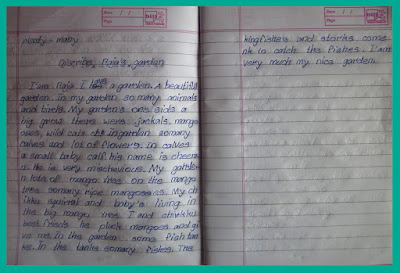 plenty - many
Describe Raja's garden
I am Raja I have a garden. A beautiful
garden. in my garden so many animals
and birds. My garden's one side a
big grove there were jackals, mango
oves, wild cats etc in garden so many
calves and lot of flowers. in calves
a small baby calf. his name is cheeni
he is very mischevious. My garden
in lots of mango tres on the mango
tres so many ripe mangoess. My ch
ikku squirral and baby's living in
the big mango tree. I and chikku
best friends he pluck mangoes and gi
ve me. In the garden some fish tan
ks. In the tanks so many fishes. The
kingfishers and storks come
nk in catch the fishes. I am
very much my nice garden.